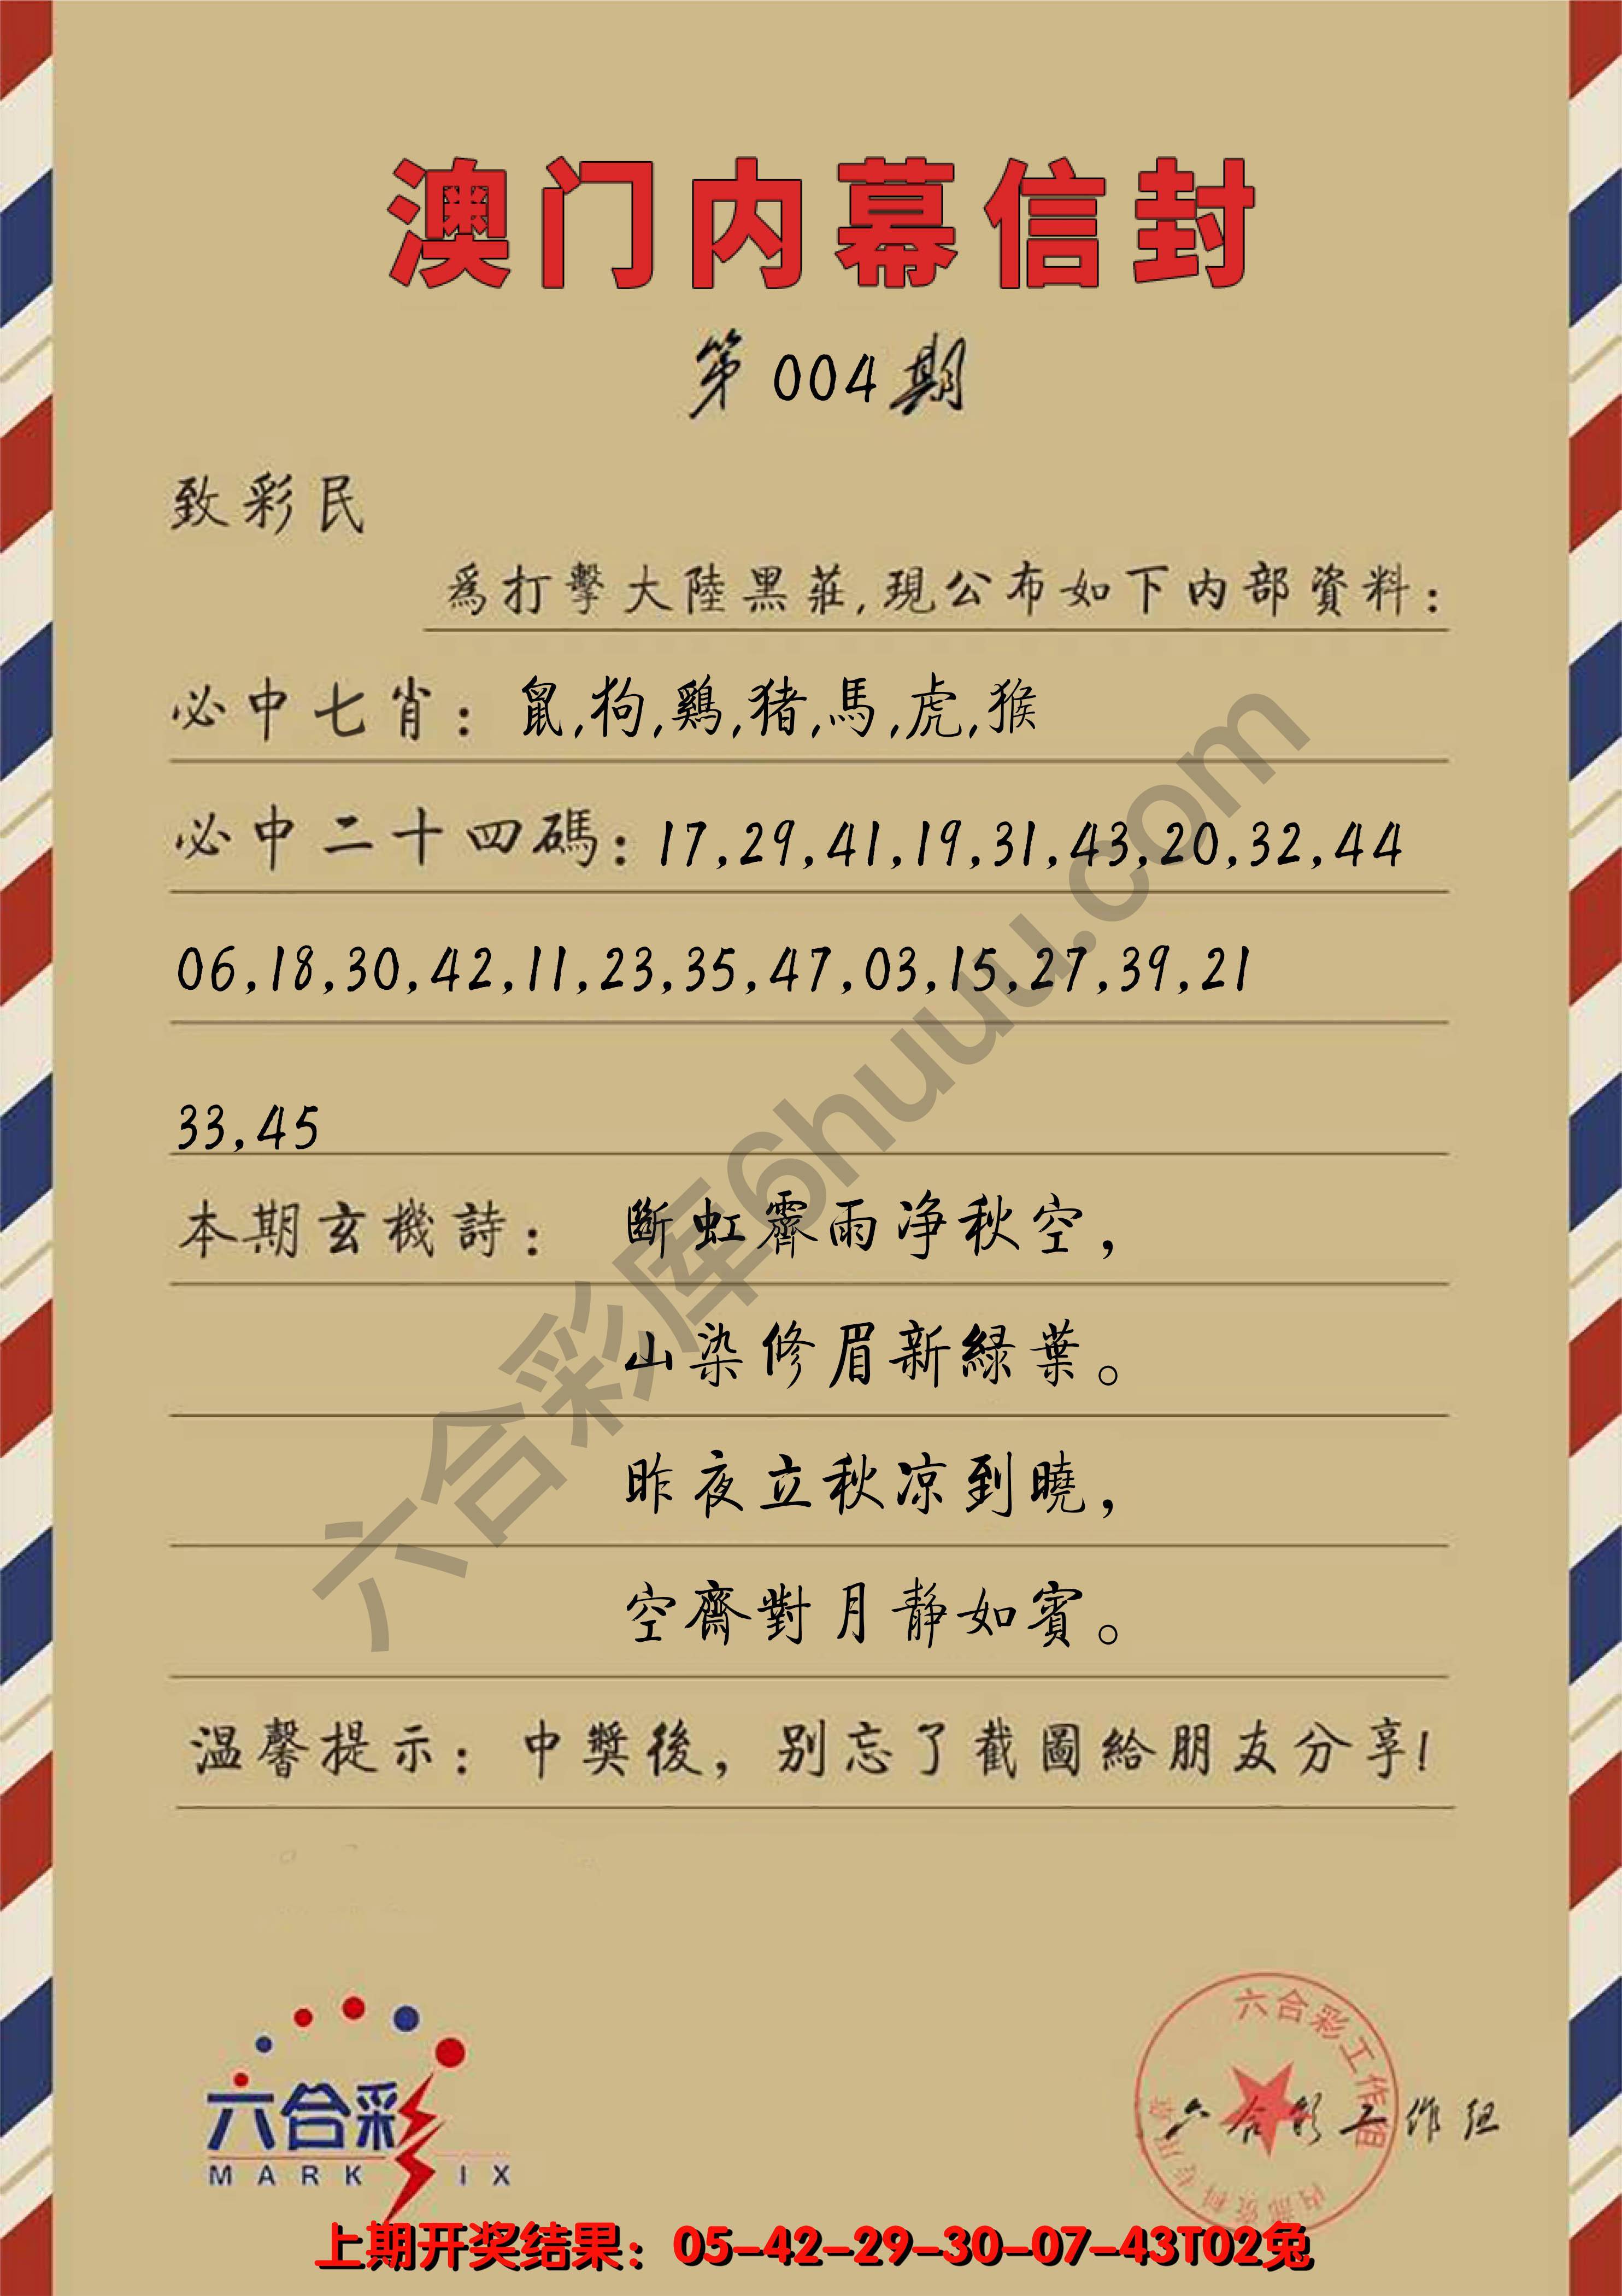 澳门内幕信封
第004期
致彩民
爲打擊大陸黑莊,現公布如下内部資料:
必中七肖: 鼠,狗,鷄,猪,馬,虎,猴
必中二十四碼: 17,29,41,19,31,43,20,32,44
06,18,30,42,11,23,35,47,03,15,27,39,21
33,45
本期玄機詩: 斷虹霽雨净秋空,
山染修眉新緑葉。
昨夜立秋凉到曉,
空齋對月静如賓。
温馨提示: 中獎後, 别忘了截圖給朋友分享!
六合彩库6huuu.com
六合彩
MARK SIX
六合彩工作组
内部资料专用章
六合彩工作组
上期开奖结果: 05-42-29-30-07-43T02兔